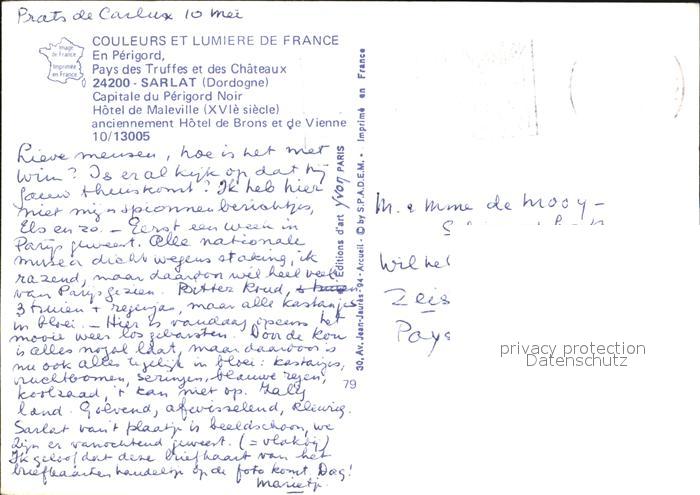 Prats de Carlux 10 mei
Image de France
Imprimée en France
COULEURS ET LUMIERE DE FRANCE
En Périgord,
Pays des Truffes et des Châteaux
24200 - SARLAT (Dordogne)
Capitale du Périgord Noir
Hôtel de Maleville (XVIè siècle)
anciennement Hôtel de Brons et de Vienne
10/13005
Lieve mensen, hoe is het met
Wim? Is er al kijk op dat hij
gauw thuiskomt? Ik heb hier
niet mijn spionnenberichtjes,
Els en zo. - Eerst een week in
Parijs geweest. Alle nationale
musea dicht wegens staking, ik
razend, maar daardoor wel heel veel
van Parijs gezien. Bitter koud,
3 truien + regenjas, maar alle kastanjes
in bloei. - Hier is vandaag opeens het
mooie weer losgebarsten. Door de kou
is alles nogal laat, maar daardoor is
nu ook alles tegelijk in bloei: kastanjes,
vruchtbomen, seringen, blauwe regen,
koolzaad, 't kan niet op. Zalig
land. Golvend, afwisselend, kleurig.
Sarlat van 't plaatje is beeldschoon, we
zijn er vanochtend geweest. (= vlakbij)
Ik geloof dat deze briefkaart van het
briefkaarten handeltje op de foto komt. Dag!
Marietje
79
Editions d'art yvon PARIS
30, Av. Jean-Jaurès - 94 - Arcueil - © by S.P.A.D.E.M. - Imprimé en France
M. & Mme de Mooy -
Wilhel
Zeis
Pays
privacy protection
Datenschutz